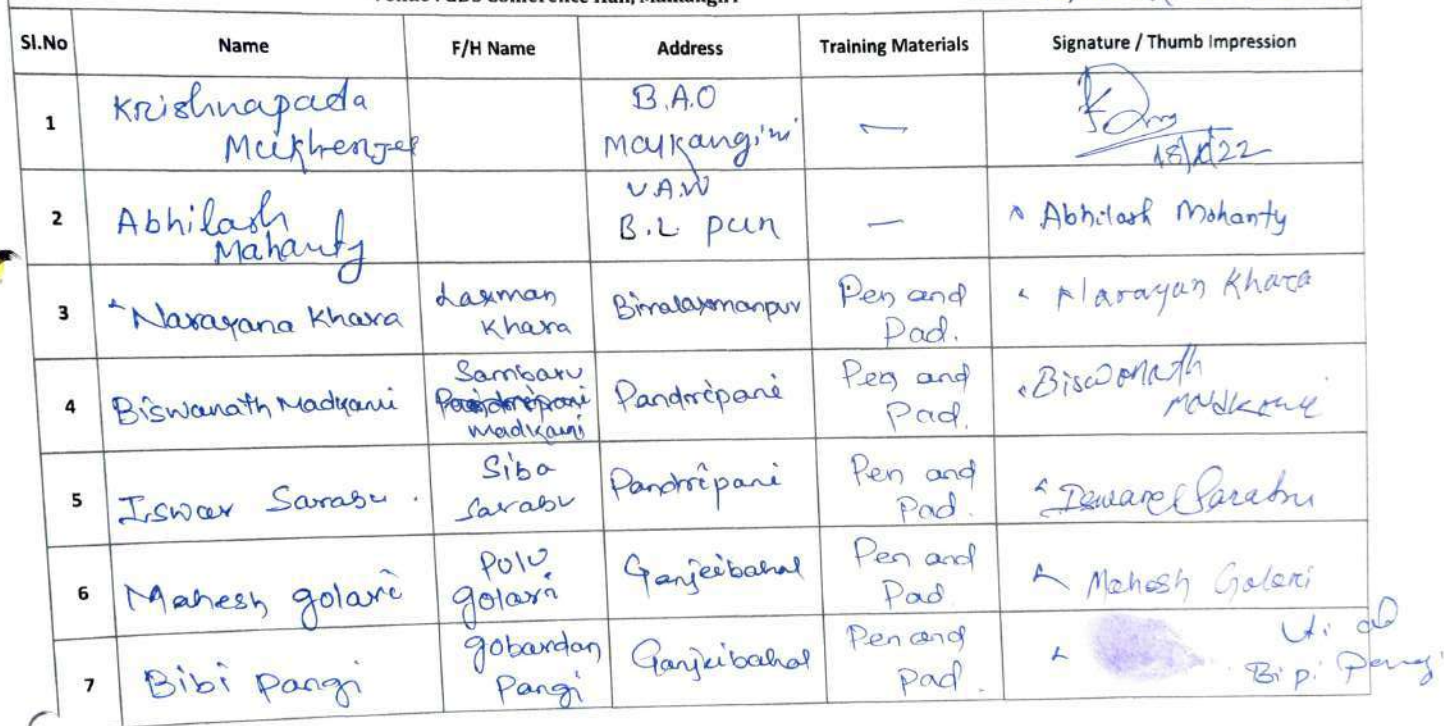 Sl.No Name F/H Name Address Training Materials Signature / Thumb Impression
1 Krishnapada Mukherjee B.A.O Malkangiri —
18/ /22
2 Abhilash Mahanty V.A.W B.L pur — Abhilash Mohanty
3 Narayana Khara Laxman Khara Bimalaxmanpur Pen and Pad. Narayan Khara
4 Biswanath Madkami Sambaru Madkami Pandripani Pen and Pad. Biswonath
5 Iswar Sarabu. Siba Sarabu Pandripani Pen and Pad.
6 Mahesh golari Polu golari Ganjeibahal Pen and Pad Mahesh Golari
7 Bibi Pangi gobardan Pangi Ganjeibahal Pen and Pad.
Bipi Pangi